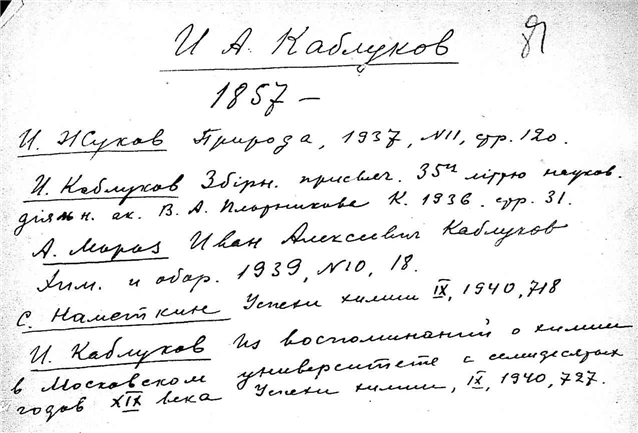 И А. Каблуков
1857 —
И. Жуков Природа, 1937, N11, стр. 120.
И. Каблуков Збірн. присвяч. 35ти літтю науков.
діяльн. ак. В. А. Плотникова К. 1936. стр. 31.
А. Мороз Иван Алексеевич Каблуков
Хим. и обор. 1939, N10, 18.
С. Наметкин Успехи химии IX, 1940, 718
И. Каблуков Из воспоминаний о химии
в Московском университете с семидесятых
годов XIX века Успехи химии, IX, 1940, 727.